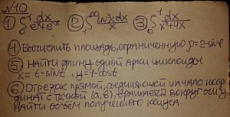 №10
① ∫₀¹ dx/(eˣ+e⁻ˣ) ② dx ③ ∫₀¹ dx/(x²+4x
④ Вычислить площадь, ограниченную
⑤ Найти длину одной арки циклоиды
x = t-sint, y=1-cost
⑥ Отрезок прямой, соединяющей начало коор
динат с точкой (a, b), вращается вокруг оси y.
Найти объём полученного конуса.